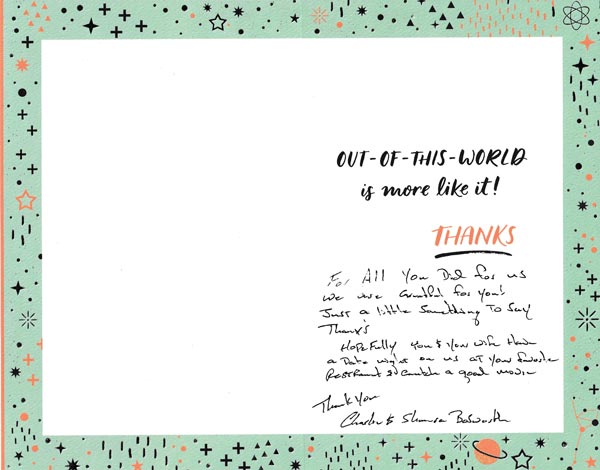 OUT-OF-THIS-WORLD
is more like it!
THANKS
For All You Did for us
we are Grateful for You's
Just a little Something To Say
Thank's
Hopefully You & You wife Have
a Date night on us at Your favorite
Restraunt & Catch a good movie
Thank You
Charles & Shawna Bosworth